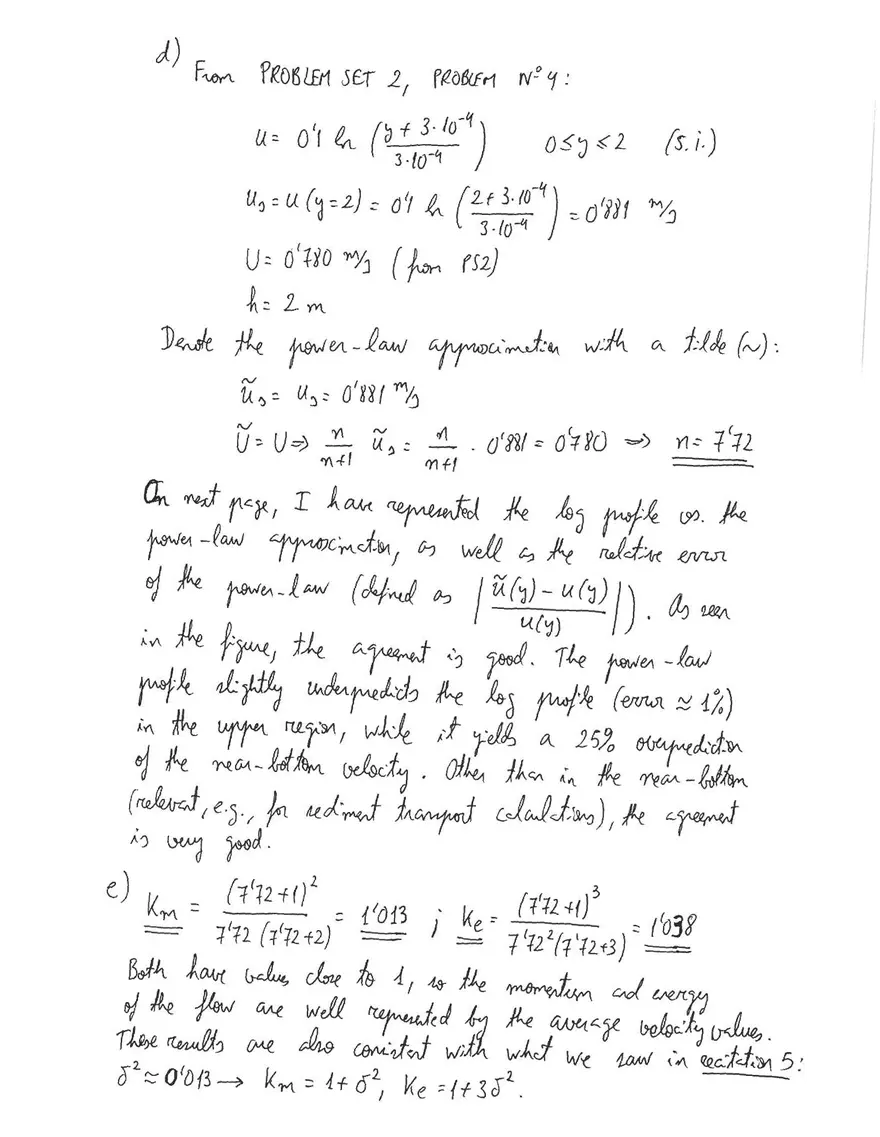 d) From PROBLEM SET 2, PROBLEM Nº 4:
u = 0'1 ln ((y + 3·10^-4) / (3·10^-4))   0 ≤ y ≤ 2   (s.i.)
u_s = u(y=2) = 0'1 ln ((2 + 3·10^-4) / (3·10^-4)) = 0'881 m/s
U = 0'780 m/s (from PS2)
h = 2 m
Denote the power-law approximation with a tilde (~):
ũ_s = u_s = 0'881 m/s
Ũ = U ⇒ n/(n+1) ũ_s = n/(n+1) · 0'881 = 0'780 ⇒ n = 7'72
On next page, I have represented the log profile vs. the
power-law approximation, as well as the relative error
of the power-law (defined as |(ũ(y) − u(y)) / u(y)|). As seen
in the figure, the agreement is good. The power-law
profile slightly underpredicts the log profile (error ≈ 1%)
in the upper region, while it yields a 25% overprediction
of the near-bottom velocity. Other than in the near-bottom
(relevant, e.g., for sediment transport calculations), the agreement
is very good.
e) K_m = (7'72+1)^2 / (7'72 (7'72+2)) = 1'013 ; K_e = (7'72+1)^3 / (7'72^2 (7'72+3)) = 1'038
Both have values close to 1, so the momentum and energy
of the flow are well represented by the average velocity values.
These results are also consistent with what we saw in recitation 5:
δ^2 ≈ 0'013 → K_m = 1+δ^2, K_e = 1+3δ^2.